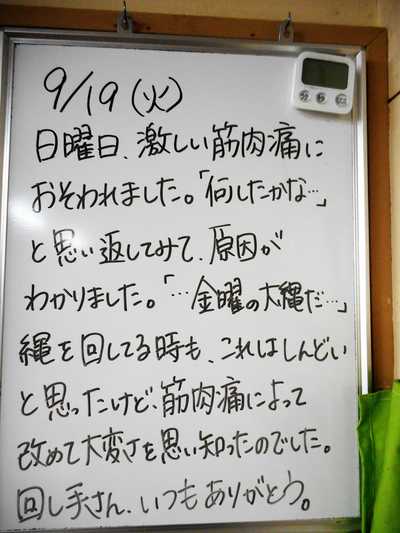 9/19(火)
日曜日、激しい筋肉痛に
おそわれました。「何したかな…」
と思い返してみて、原因が
わかりました。「…金曜の大縄だ…」
縄を回してる時も、これはしんどい
と思ったけど、筋肉痛によって
改めて大変さを思い知ったのでした。
回し手さん、いつもありがとう。